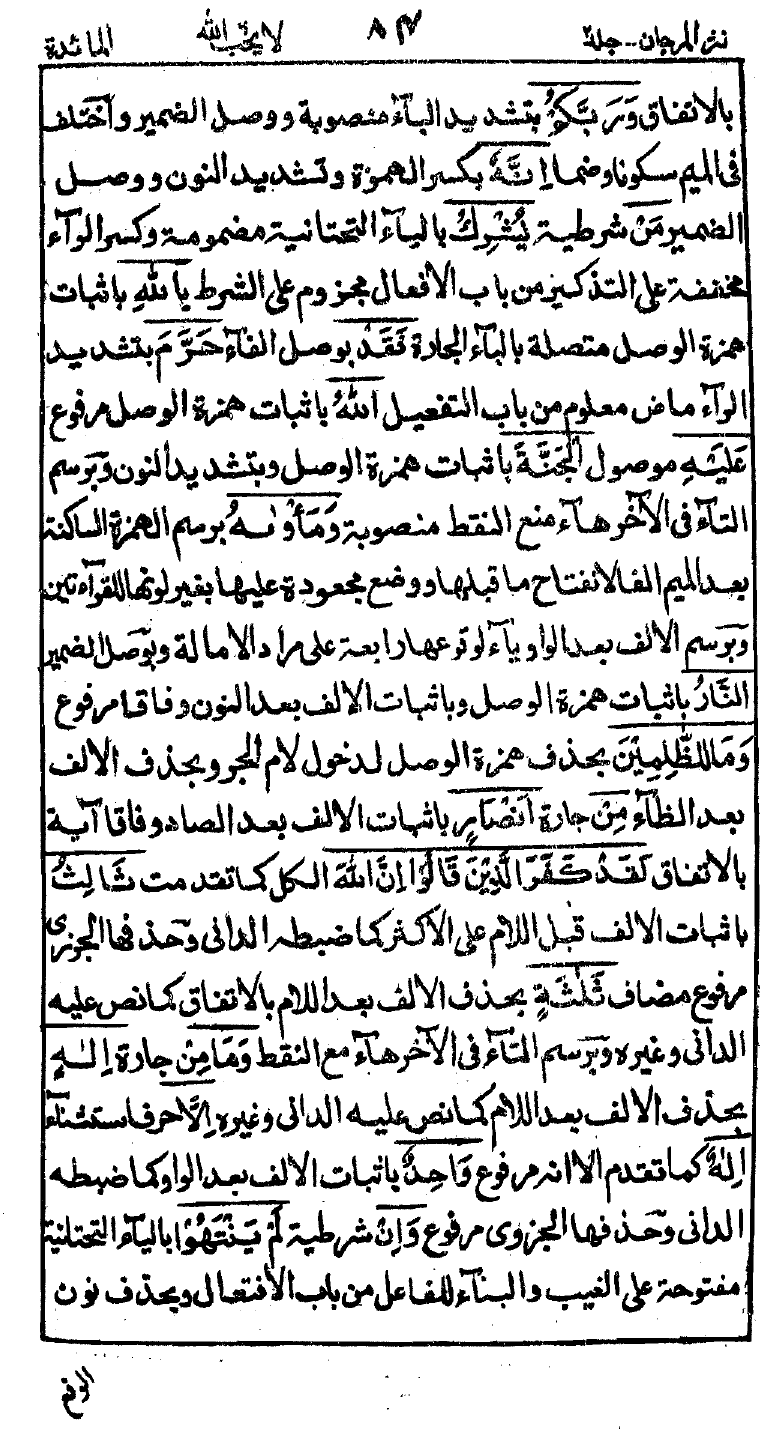 نثر المرجان-جلد ٨٤ لا يحب الله المائدة
بالاتفاق وَرَبَّكُمْ بتشديد البآء منصوبة ووصل الضمير وآختلف
فى الميم سكونا وضما اِنَّهُ بكسر الهمزة وتشديد النون ووصل
الضمير مَنْ شرطية يُّشْرِكْ باليآء التحتانية مضمومة وكسر الرآء
مخففة على التذكير من باب الأفعال مجزوم على الشرط بِاللهِ باثبات
همزة الوصل متصلة بالبآء الجارة فَقَدْ بوصل الفآء حَرَّمَ بتشديد
الرآء ماض معلوم من باب التفعيل اللهُ باثبات همزة الوصل مرفوع
عَلَيْهِ موصول الْجَنَّةَ باثبات همزة الوصل وبتشديد النون وبرسم
التآء فى الآخر هآء منع النقط منصوبة وَمَأْوٰىهُ برسم الهمزة الساكنة
بعد الميم الفا لانفتاح ما قبلها ووضع مجعودة عليها بغير لونها للقرآءتين
وبرسم الالف بعد الواو يآء لوقوعها رابعة على مراد الامالة وبوصل الضمير
النَّارُ باثبات همزة الوصل وباثبات الالف بعد النون وفاقا مرفوع
وَمَا لِلظّٰلِمِيْنَ بحذف همزة الوصل لدخول لام الجر وبحذف الالف
بعد الظآء مِنْ جارة اَنْصَارٍ باثبات الالف بعد الصاد وفاقا آية
بالاتفاق لَقَدْ كَفَرَ الَّذِيْنَ قَالُوْا اِنَّ اللهَ الكل كما تقدمت ثَالِثُ
باثبات الالف قبل اللام على الأكثر كما ضبطه الدانى وحذفها الجوزرى
مرفوع مضاف ثَلٰثَةٍ بحذف الالف بعد اللام بالاتفاق كما نص عليه
الدانى وغيره وبرسم التآء فى الآخر هآء مع النقط وَمَا مِنْ جارة اِلٰهٍ
بحذف الالف بعد اللام كما نص عليه الدانى وغيره اِلَّا حرف استثنآء
اِلٰهٌ كما تقدم الا انه مرفوع وَاحِدٌ باثبات الالف بعد الواو كما ضبطه
الدانى وحذفها الجزرى مرفوع وَاِنْ شرطية لَمْ يَنْتَهُوْا باليآء التحتانية
مفتوحة على الغيب والبنآء للفاعل من باب الافتعال وبحذف نون
الرفع